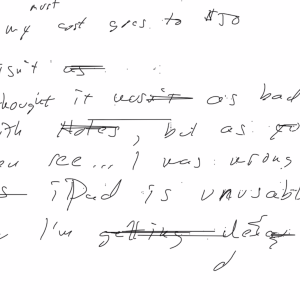 must
my cost goes to $50
isn't as
thought it wasn't as bad
with Notes, but as you
can see... I was wrong
s iPad is unusabl
I'm getting
d